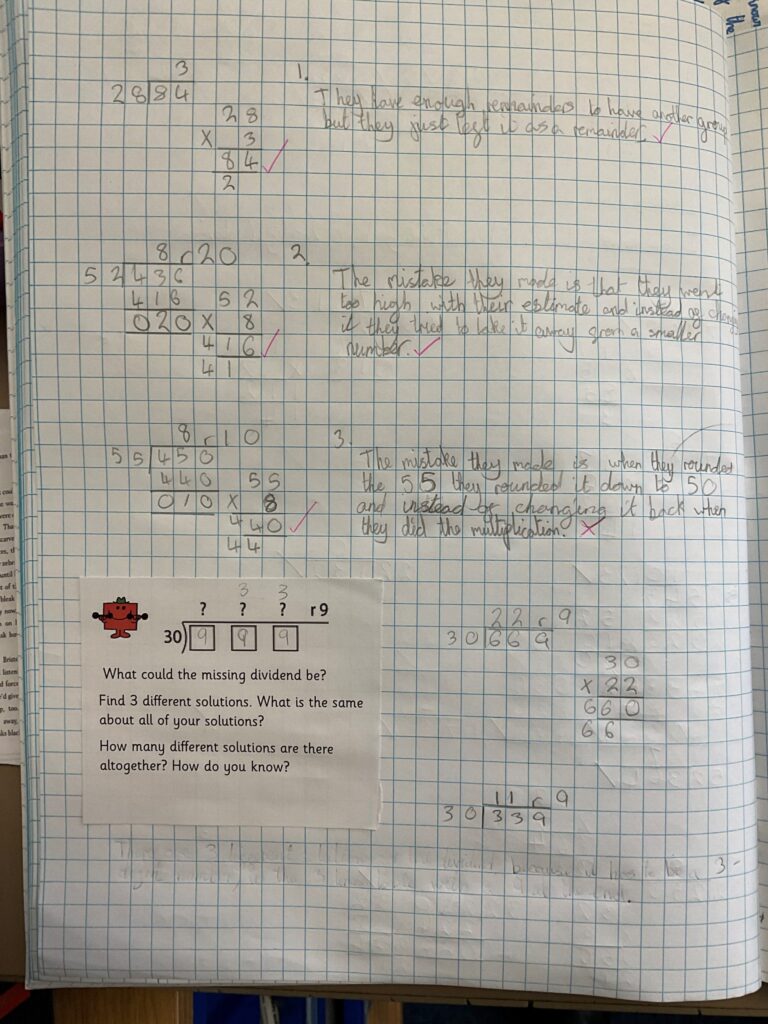 3
28 84
28
X 3
84
2
1.
They have enough remainders to have another group
but they just left it as a remainder.
8 r20
52 436
416
020
52
X 8
416
41
2.
The mistake they made is that they went
too high with their estimate and instead of
it they tried to take it away from a smaller
number.
8 r10
55 450
440
010
55
X 8
440
44
3.
The mistake they made is when they rounded
the 55 they rounded it down to 50
and instead of changing it back when
they did the multiplication.
3 3
? ? ? r9
30 9 9 9
What could the missing dividend be?
Find 3 different solutions. What is the same
about all of your solutions?
How many different solutions are there
altogether? How do you know?
22 r 9
30 669
30
X 22
660
66
11 r 9
30 339
because it has to be
3 -